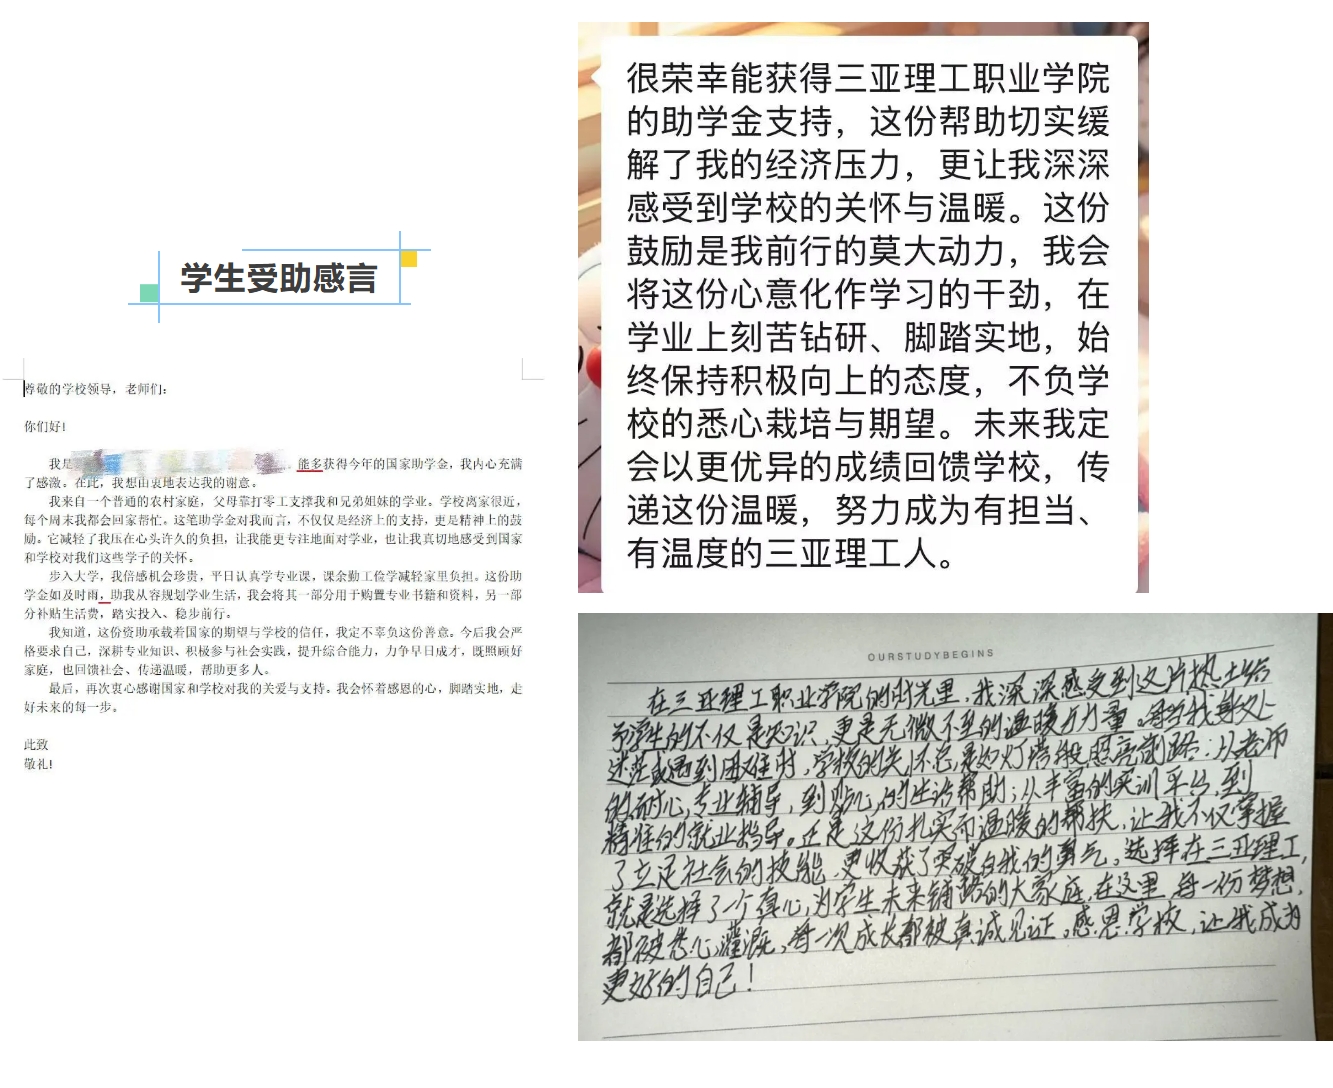 学生受助感言
尊敬的学校领导，老师们：
你们好！
我是
能多获得今年的国家助学金，我内心充满
了感激。在此，我想由衷地表达我的谢意。
我来自一个普通的农村家庭，父母靠打零工支撑我和兄弟姐妹的学业。学校离家很近，
每个周末我都会回家帮忙。这笔助学金对我而言，不仅仅是经济上的支持，更是精神上的鼓
励。它减轻了我压在心头许久的负担，让我能更专注地面对学业，也让我真切地感受到国家
和学校对我们这些学子的关怀。
步入大学，我倍感机会珍贵，平日认真学专业课，课余勤工俭学减轻家里负担。这份助
学金如及时雨，助我从容规划学业生活，我会将其一部分用于购置专业书籍和资料，另一部
分补贴生活费，踏实投入、稳步前行。
我知道，这份资助承载着国家的期望与学校的信任，我定不辜负这份善意。今后我会严
格要求自己，深耕专业知识、积极参与社会实践，提升综合能力，力争早日成才，既照顾好
家庭，也回馈社会、传递温暖，帮助更多人。
最后，再次衷心感谢国家和学校对我的关爱与支持。我会怀着感恩的心，脚踏实地，走
好未来的每一步。
此致
敬礼！
很荣幸能获得三亚理工职业学院
的助学金支持，这份帮助切实缓
解了我的经济压力，更让我深深
感受到学校的关怀与温暖。这份
鼓励是我前行的莫大动力，我会
将这份心意化作学习的干劲，在
学业上刻苦钻研、脚踏实地，始
终保持积极向上的态度，不负学
校的悉心栽培与期望。未来我定
会以更优异的成绩回馈学校，传
递这份温暖，努力成为有担当、
有温度的三亚理工人。
OURSTUDYBEGINS
在三亚理工职业学院的时光里，我深深感受到这片热土给
予学生的不仅是知识，更是无微不至的温暖与力量。每当我身处
迷茫或遇到困难时，学校的关怀总是如灯塔般照亮前路：从老师
的耐心专业辅导，到贴心的生活帮助；从丰富的实训平台，到
精准的就业指导。正是这份扎实而温暖的帮扶，让我不仅掌握
了立足社会的技能，更收获了突破自我的勇气。选择在三亚理工，
就是选择了一个真心为学生未来铺路的大家庭，在这里，每一份梦想，
都被悉心灌溉，每一次成长都被真诚见证。感恩学校，让我成为
更好的自己！